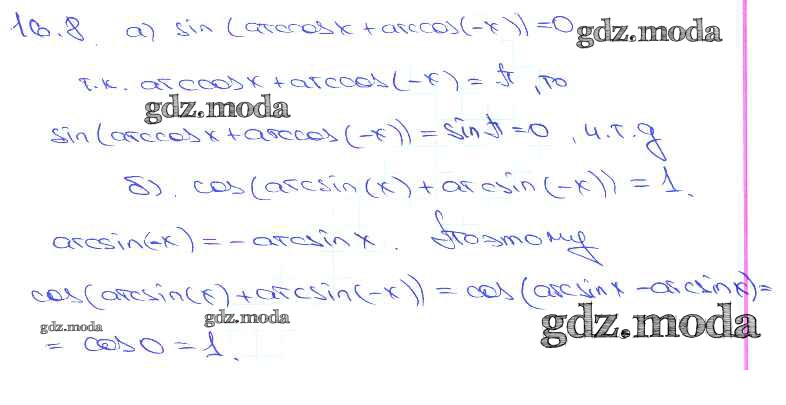 16.8. а) sin (arccosx + arccos(-x)) = 0 gdz.moda
т.к. arccosx + arccos(-x) = π, то
gdz.moda
sin(arccosx + arccos(-x)) = sinπ = 0, ч.т.д
б). cos(arcsin(x) + arcsin(-x)) = 1.
arcsin(-x) = -arcsinx. Поэтому
cos(arcsin(x) + arcsin(-x)) = cos(arcsinx - arcsinx) =
gdz.moda gdz.moda gdz.moda
= cos0 = 1.